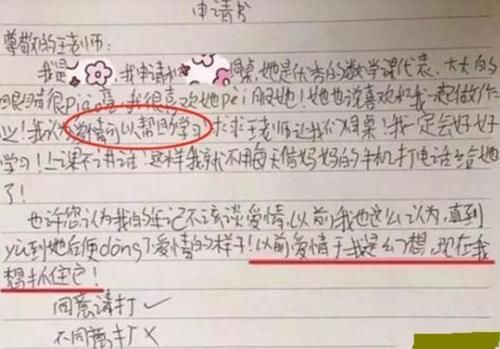 申请书
尊敬的王老师:
我是 , 我申请和 同桌,她是优秀的数学课代表、大大的
眼睛很piao亮,我很喜欢她pei服她!她也说喜欢和我一起做作
业!我认为爱情可以帮助学习 求求王老师让我们同桌!我一定会好好
学习!上课不讲话!这样我就不用每天借妈妈的手机打电话给她
了!
也许您认为我的年纪不该谈爱情,以前我也这么认为,直到
yù到她后便dǒng了爱情的样子!以前爱情于我是幻想,现在我
想抓住它!
同意请打✓
不同意打×